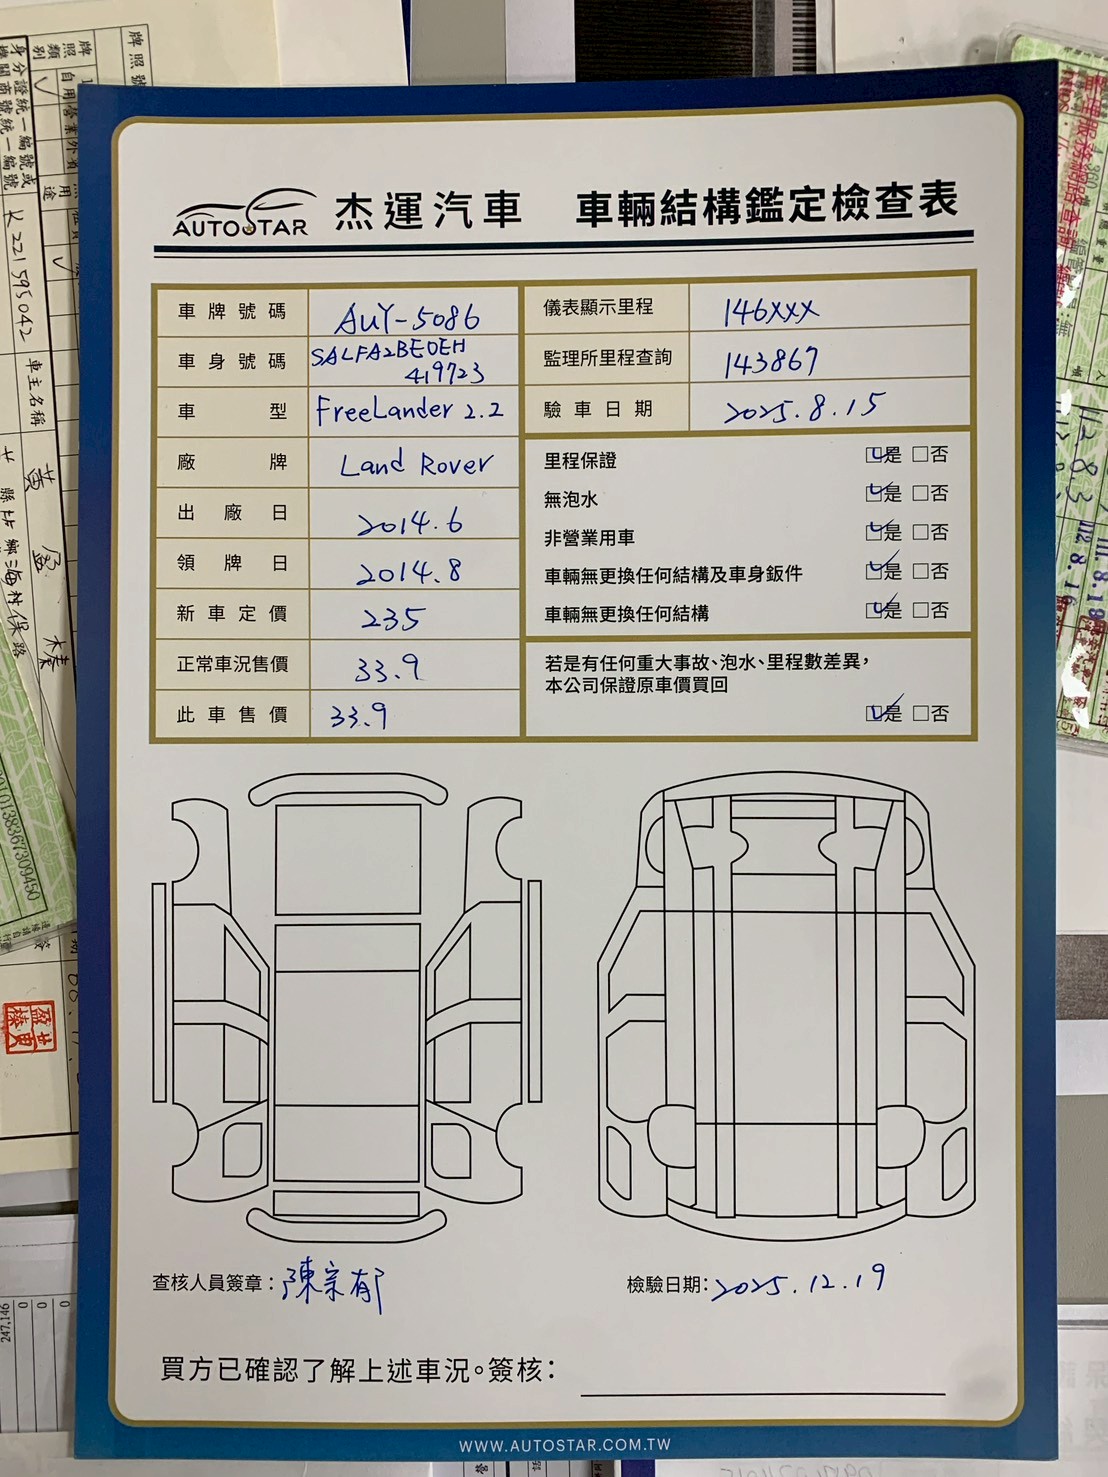 AUTOSTAR 杰運汽車 車輛結構鑑定檢查表
車牌號碼 AUY-5086
車身號碼 SALFA2BE0EH
419723
車型 FreeLander 2.2
廠牌 Land Rover
出廠日 2014.6
領牌日 2014.8
新車定價 235
正常車況售價 33.9
此車售價 33.9
儀表顯示里程 146xxx
監理所里程查詢 143867
驗車日期 2025.8.15
里程保證 ☑是 □否
無泡水 ☑是 □否
非營業用車 ☑是 □否
車輛無更換任何結構及車身鈑件 ☑是 □否
車輛無更換任何結構 ☑是 □否
若是有任何重大事故、泡水、里程數差異，
本公司保證原車價買回
☑是 □否
查核人員簽章：陳宗郁
檢驗日期：2025.12.19
買方已確認了解上述車況。簽核：
WWW.AUTOSTAR.COM.TW
牌照號
牌照類別
自用
身分證統一編號或
車主名稱
247,146